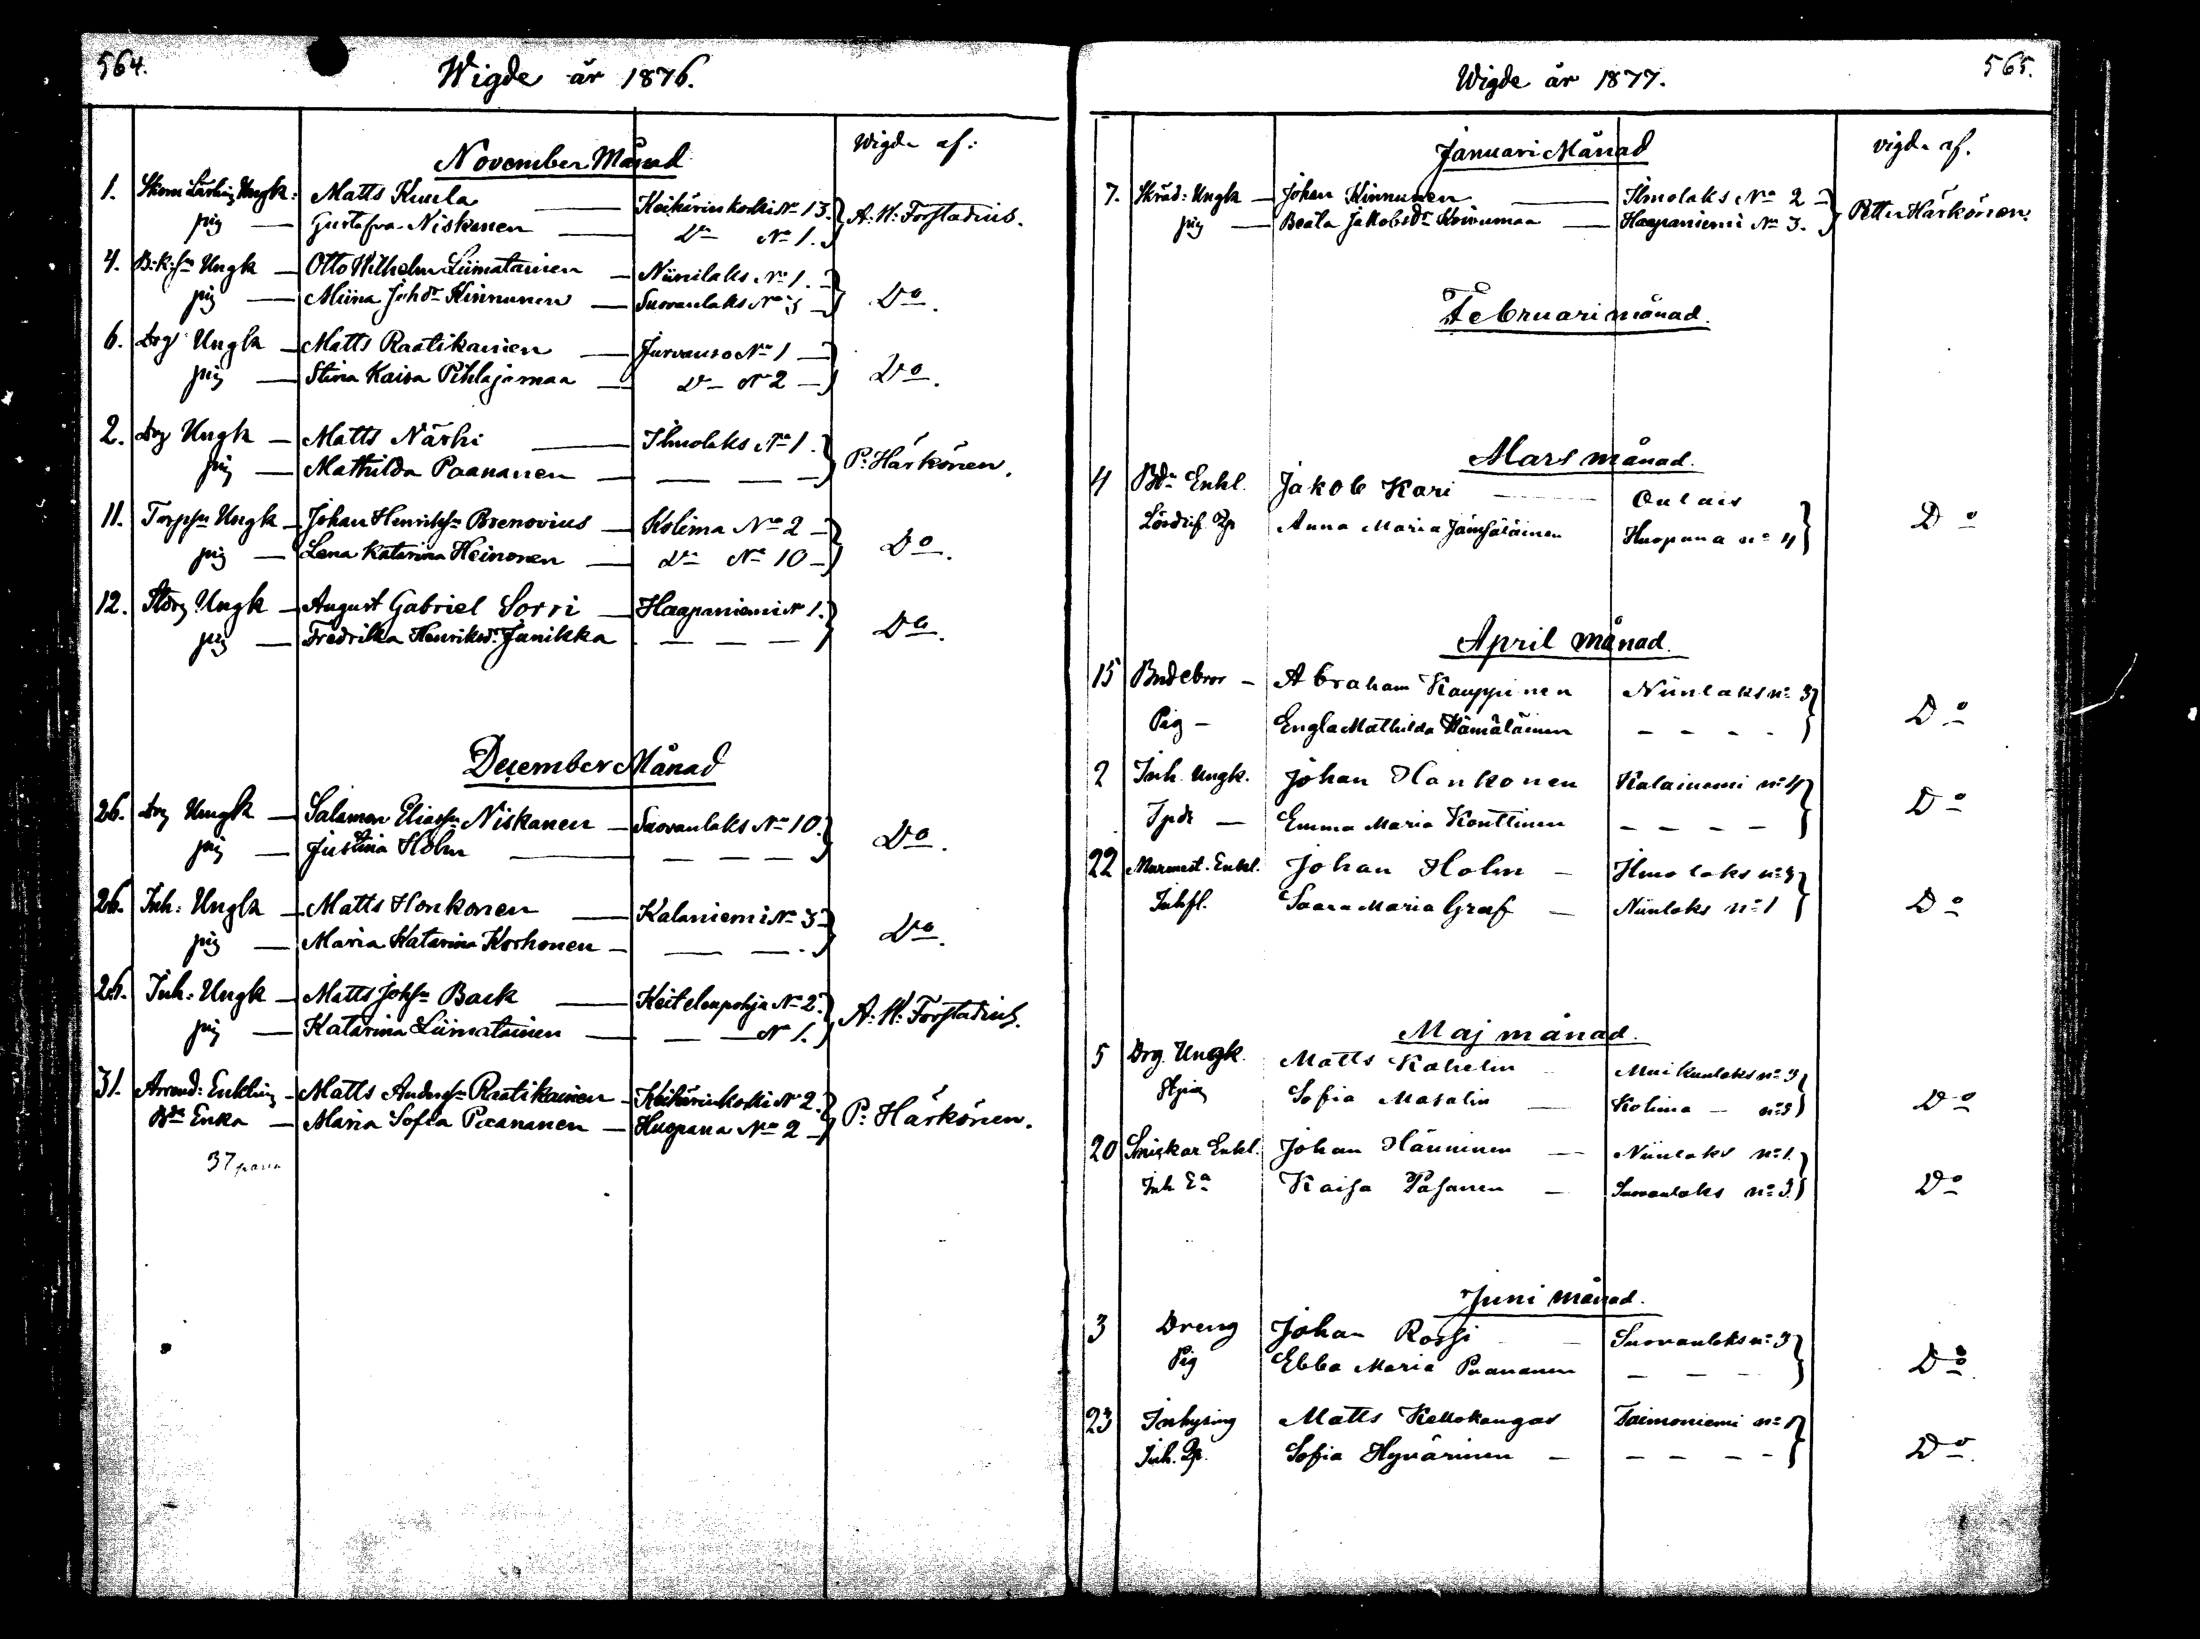 564.
Wigde år 1876.
November Månad
Wigde af:
1. Skom: Lärling Ungk: Matts Kuula — Keihärinkoski No 13.
pig — Gustafva Niskanen — Do No 1. A. W. Forstadius.
4. B:k:sn Ungk — Otto Wilhelm Liimatainen — Niinilaks No 1.
pig — Miina Johdr Kinnunen — Suovanlaks No 3 — Do.
6. Drg Ungk — Matts Raatikainen — Jurvanso No 1 —
pig — Stina Kaisa Pihlajamaa — Do No 2 — Do.
2. Drg Ungk — Matts Närhi — Ilmolaks No 1.
pig — Mathilda Paananen — — — — P. Härkönen.
11. Torpsn Ungk — Johan Henriksn Brenovius — Kolima No 2 —
pig — Lena Katarina Heinonen — Do No 10 — Do.
12. Ungk — August Gabriel Sorri — Haapaniemi No 1.
pig — Fredrika Henriksdr Janikka — — — Do.
December Månad
26. Drg Ungk — Salamon Eliassn Niskanen — Suovanlaks No 10.
pig — Justina Holm — — — — Do.
26. Inh: Ungk — Matts Honkonen — Kalaniemi No 3
pig — Maria Katarina Korhonen — — — Do.
26. Inh: Ungk — Matts Johsn Back — Keitelenpohja No 2.
pig — Katarina Liimatainen — — — No 1. A. W. Forstadius.
31. Arrend: Enkling — Matts Andersn Raatikainen — Keihärinkoski No 2.
Bde Enka — Maria Sofia Paananen — Huopana No 2 — P. Härkönen.
37 paria
565.
Wigde år 1877.
Januari Månad
vigde af.
7. Skräd: Ungk — Johan Kinnunen — Ilmolaks No 2 —
pig — Beata Jakobsdr Koivumaa — Haapaniemi No 3. Petter Härkönen.
Februari månad.
Mars månad.
4 Bde Enkl. Jakob Kari — Oulais
Anna Maria Jämsäläinen Huopana no 4 Do
April månad.
15 Bndebror — Abraham Kauppinen Niinlaks no 3
Pig — Engla Mathilda Hämäläinen — — — — Do
2 Inh. Ungk. Johan Hankonen Kalaniemi no 4
Ipdr — Emma Maria Konttinen — — — — Do
22 Murmest. Enkl. Johan Holm — Ilmolaks no 3
Inhfl. Saara Maria Graf — Niinlaks no 1 Do
Maj månad.
5 Drg. Ungk. Matts Kahelin — Muikunlaks no 3
Sofia Masalin — Kolima — no 3 Do
20 Enkl. Johan Hänninen — Niinlaks no 1.
Inh Ea Kaisa Pasanen — Suovanlaks no 3. Do
Juni månad.
3 Dreng Johan Rossi — Suovanlaks no 3
Pig Ebba Maria Paananen — — — Do
23 Inhysing Matts Kellokangas Taimoniemi no 1
Inh. Qp. Sofia Hyvärinen — — — — — Do.